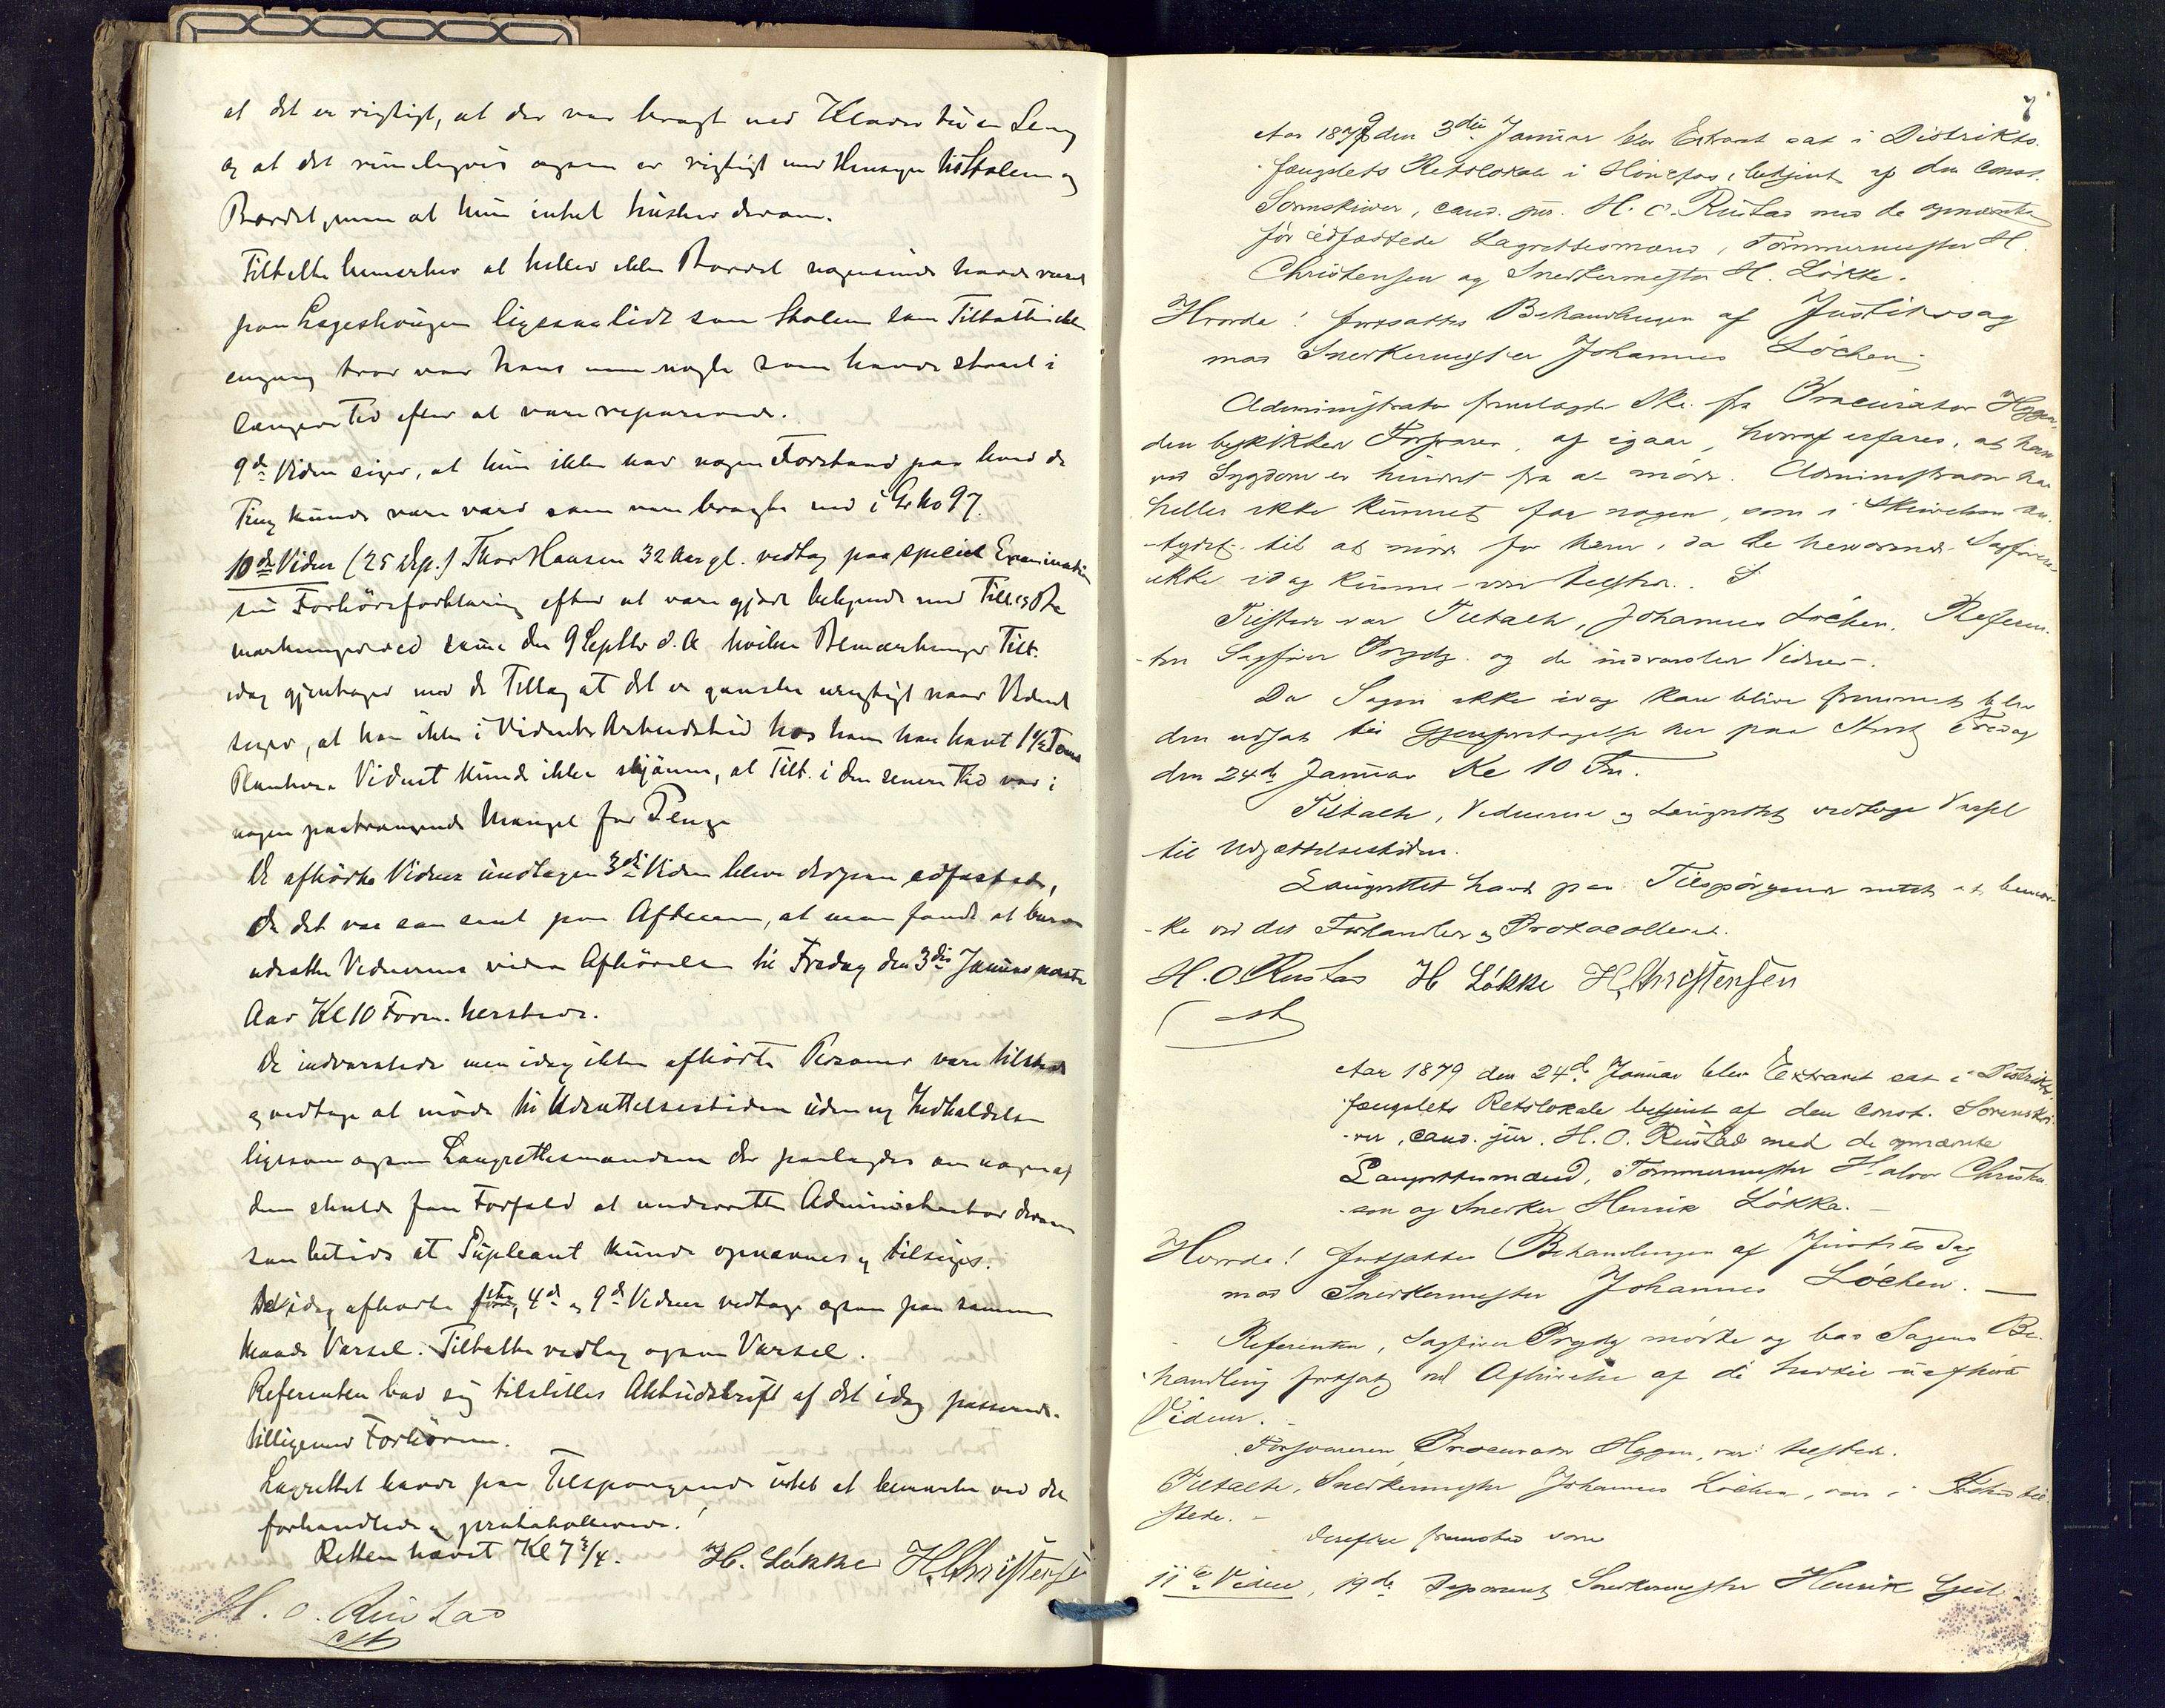 at det er rigtigt, at der var bragt ned Klæder til en Seng
og at det rimeligvis ogsaa er rigtigt med Hensyn til Stolene og
Bordet, men at hun intet husker derom.
Tiltalte bemærker at heller ikke Bordet nogensinde havde været
paa Lageshaugen ligesaalidt som Stolene som Tiltalte ikke
engang tror var hans men nogle som havde staaet i
længere Tid efter at være reparerede.
9de Vidne siger, at hun ikke har nogen Forstand paa hvad de
Ting kunde være værd som var bragte ned i No 97.
10de Vidne (25 Dep.) Thor Hansen 32 Aar gl. vedtog paa speciel Examination
sin Forhørsforklaring efter at være gjort bekjendt med Tilt.s Be
mærkninger ved samme den 9 Septbr d.A. hvilke Bemærkninger Tilt.
idag gjentager med de Tillæg at det er ganske urigtigt naar Vidnet
siger, at han ikke i Vidnets Arbeidstid hos ham har havt 1 1/2 Toms
Planker. Vidnet kunde ikke skjønne, at Tilt. i den senere Tid var i
nogen paatrængende Mangel for Penge
De afhørte Vidner undtagen 3die Vidne bleve derpaa edfæstede,
da det var saa sent paa Aftenen, at man fandt at burde
udsætte Vidnernes videre Afhørelse til Fredag den 3die Januar næste
Aar Kl 10 Form. hersteds.
De indvarslede men idag ikke afhørte Personer vare tilstede
og vedtoge at møde til Udsættelsestiden uden ny Indkaldelse
ligesom ogsaa Laugrettesmændene der paalagdes om nogen af
dem skulde faa Forfald at underrette Administrator derom
saa betids at Supleant kunde opnævnes og tilsiges.
De idag afhørte første, 4de og 9de Vidner vedtoge ogsaa paa samme
Maade Varsel. Tiltalte vedtog ogsaa Varsel.
Referenten bad sig tilstillet Aktudskrift af det idag passerede
tilligemed Forhørene.
Lagrettet havde paa Tilspørgende intet at bemærke ved det
forhandlede og protokollerede.
Retten hævet Kl 7 3/4. H. Løkke H. Christensen
H. O. Rustad
cst
7
Aar 1879 den 3die Januar blev Extraret sat i Distrikts-
fængslets Retslokale i Hønefos, betjent af den const.
Sorenskriver, cand. jur. H. O. Rustad med de opnævnte
før edfæstede Lagrettesmænd, Tømmermester H.
Christensen og Snedkermester H. Løkke.
Hvorda! fortsattes Behandlingen af Justitssag
mod Snedkermester Johannes Løchen.
Administrator fremlagde Skr. fra Procurator Hyggen,
den beskikkede Forsvarer, af igaar, hvoraf erfares, at han
ved Sygdom er hindret fra at møde. Administrator har
heller ikke kunnet faa nogen, som i Skrivelsen an-
tydet, til at møde for ham, da de herværende Sagførere
ikke idag kunne være tilstede.
Tilstede var Tiltalte, Johannes Løchen, Referen-
ten Sagfører Prydz og de indvarslede Vidner.
Da Sagen ikke idag kan blive fremmet, blev
den udsat til Gjenforetagelse her paa Sted Fredag
den 24de Januar Kl 10 Fm.
Tiltalte, Vidnerne og Laugrettet vedtoge Varsel
til Udsættelsestiden.
Laugrettet havde paa Tilspørgende intet at bemær-
ke ved det Forhandlede og Protocollerede.
H. O. Rustad H Løkke H. Christensen
cst
Aar 1879 den 24de Januar blev Extraret sat i Distrikts-
fængslets Retslokale betjent af den const. Sorenskri-
ver, cand. jur. H. O. Rustad med de opnævnte
Laugrettesmænd, Tømmermester Halvor Christen-
sen og Snedker Henrik Løkke.
Hvorda! fortsattes Behandlingen af Justitssag
mod Snedkermester Johannes Løchen.
Referenten, Sagfører Prydz mødte og bad Sagens Be-
handling fortsat ved Afhørelse af de hertil uafhørte
Vidner.
Forsvareren, Procurator Hyggen, var tilstede.
Tiltalte, Snedkermester Johannes Løchen, var i Retten til-
stede.
Derefter fremstod som
11te Vidne, 19de Deponent, Snedkermester Henrik